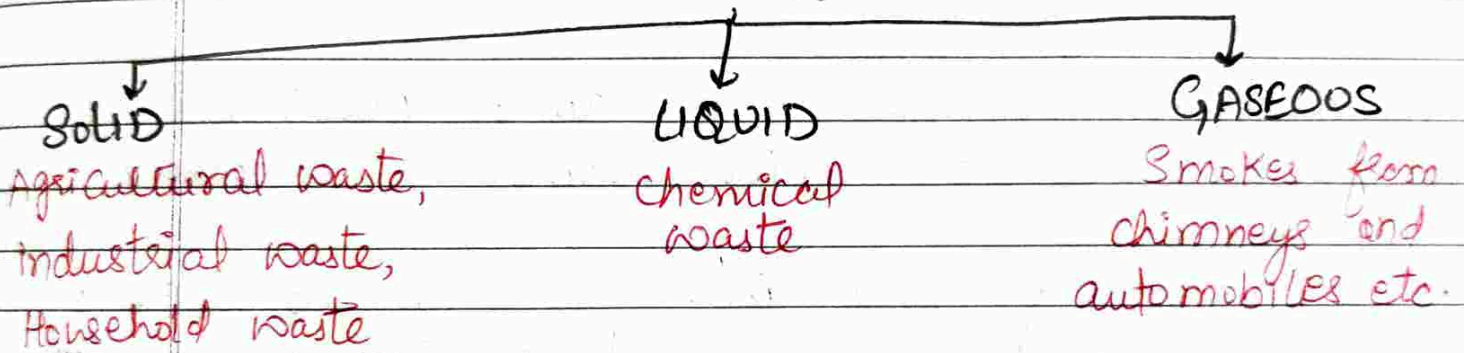 SOLID
Agricultural waste,
industrial waste,
Household waste
LIQUID
chemical
waste
GASEOOS
Smokes from
chimneys and
automobiles etc.